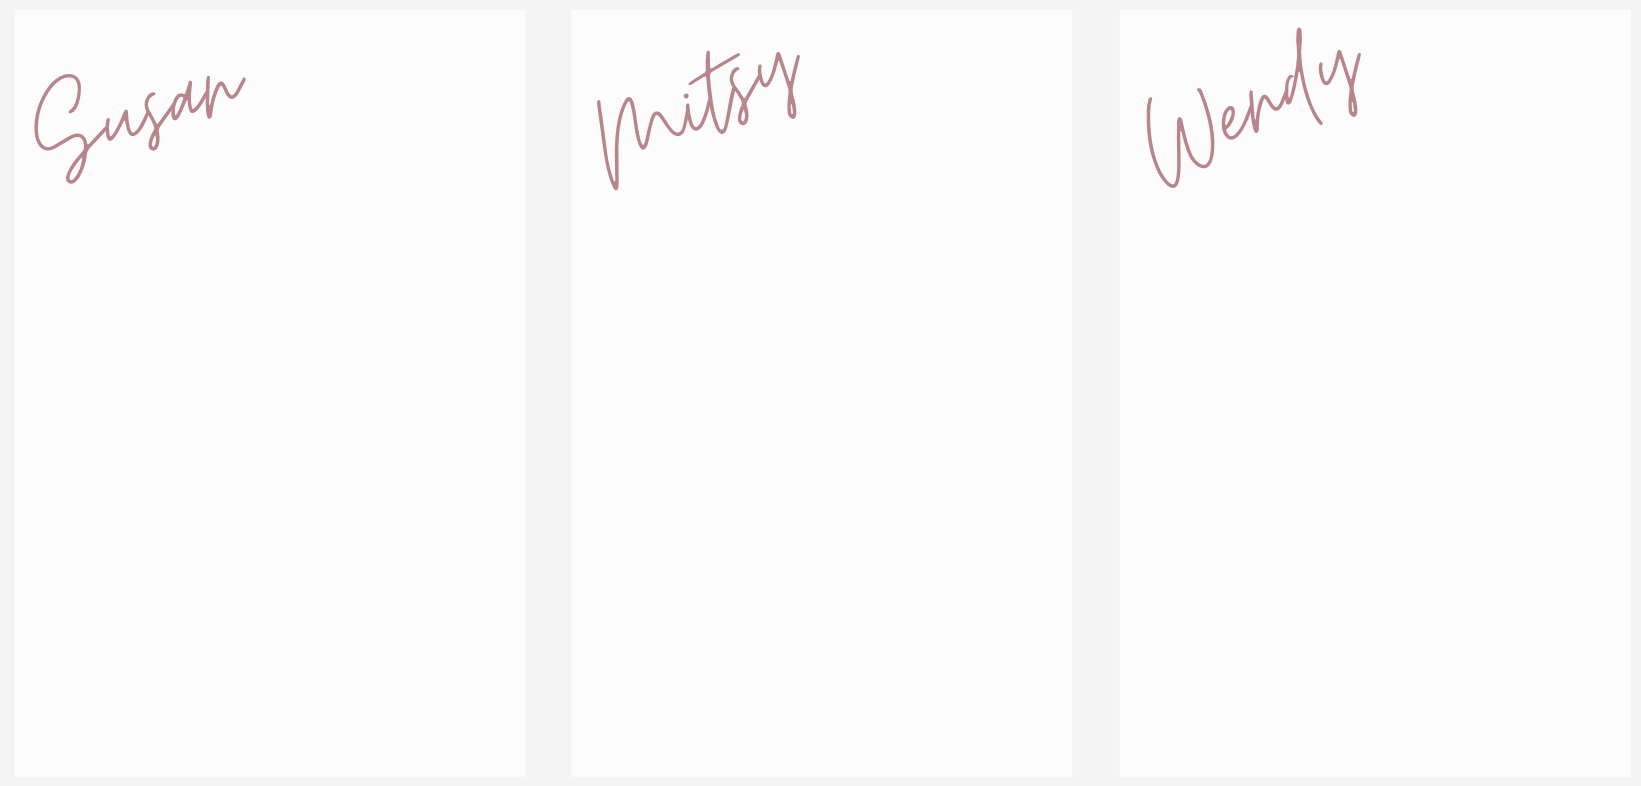 Susan
Mitsy
Wendy